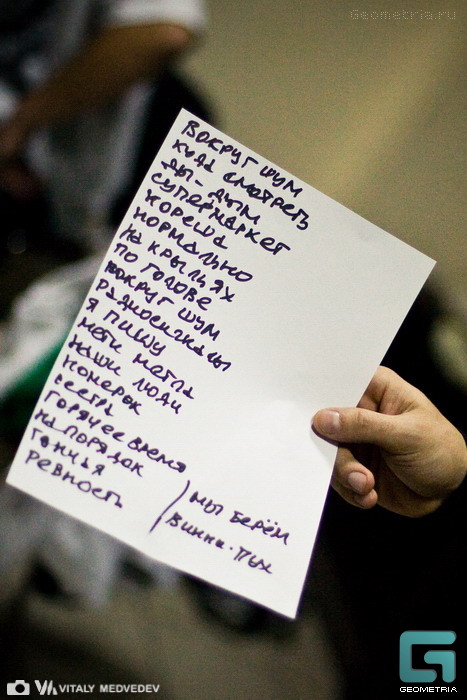 Geometria.ru
ВОКРУГ ШУМ
КУДА СМОТРЕТЬ
ДЫ-ДЫМ
СУПЕРМАРКЕТ
КОРЕША
НОРМАЛЬНО
НА КРЫЛЬЦЯХ
ПО ГОЛОВЕ
ВОКРУГ ШУМ
РАДИОСИГНАЛЫ
Я ПИШУ
МЕТИ МЕТЛА
НАШИ ЛЮДИ
НОМЕРОК
СЕСТРА
ГОРЯЧЕЕ ВРЕМЯ
НА ПОРЯДОК
ГОНИЯ
РЕВНОСТЬ
МЫ БЕРЁМ
ВИННИ-ПУХ
VM VITALY MEDVEDEV
G
GEOMETRIA